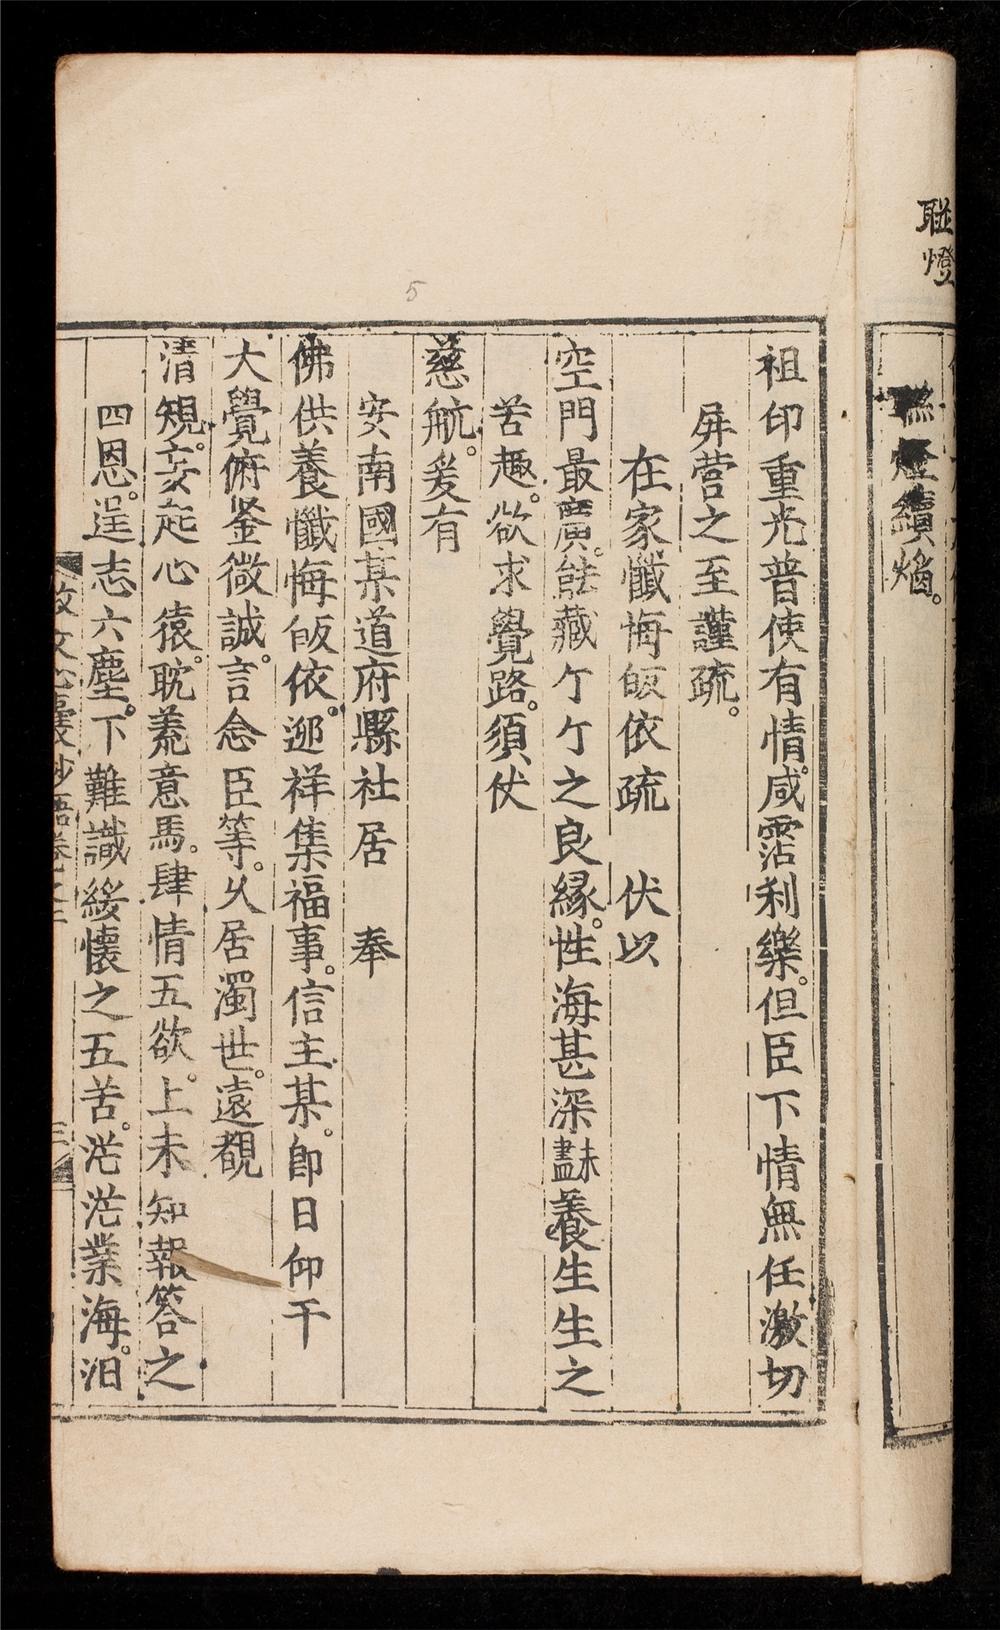 聯燈
聯燈續焰。
5
祖印重光普使有情。咸霑利樂。但臣下情無任激切
屏營之至謹疏。
在家懺悔皈依疏　伏以
空門最廣。能藏个个之良緣。性海甚深𥁞養生生之
苦趣。欲求覺路。須伏
慈航。爰有
安南國某道府縣社居　奉
佛供養懺悔皈依。迎祥集福事。信主某。即日仰干
大覺俯鉴微誠。言念臣等。久居濁世。遠覩
清䂓。妄起心猿。耽荒意馬。肆情五欲。上未知報答之
四恩。逞志六塵。下難識綏懷之五苦。茫茫業海。汨